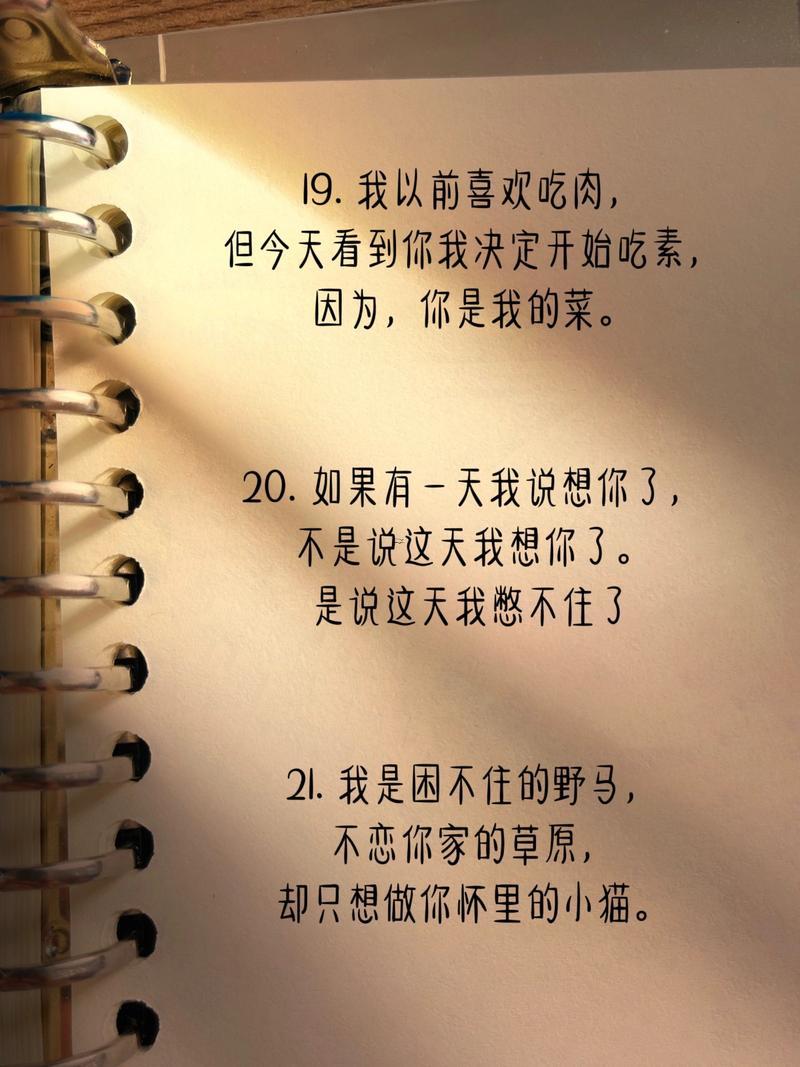 19. 我以前喜欢吃肉，
但今天看到你我决定开始吃素，
因为，你是我的菜。
20. 如果有一天我说想你了，
不是说这天我想你了。
是说这天我憋不住了
21. 我是困不住的野马，
不恋你家的草原，
却只想做你怀里的小猫。